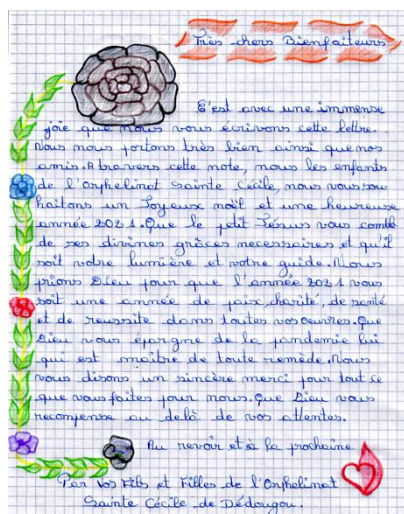 Très chers Bienfaiteurs
C'est avec une immense
joie que nous vous écrivons cette lettre.
Nous nous portons très bien ainsi que nos
amis. A travers cette note, nous les enfants
de l'Orphelinat Sainte Cécile, nous vous sou
haitons un Joyeux noël et une heureuse
année 2021. Que le petit Jésus vous comble
de ses divines grâces necessaires et qu'il
soit votre lumière et votre guide. Nous
prions Dieu pour que l'année 2021 vous
soit une année de paix, charité, de santé
et de reussite dans toutes vos oeuvres. Que
Dieu vous épargne de la pandemie lui
qui est maître de toute remède. Nous
vous disons un sincère merci pour tout ce
que vous faites pour nous. Que Dieu vous
recompense au delà de vos attentes.
Au revoir et à la prochaine
Par vos Fils et Filles de l'Orphelinat
Sainte Cécile de Dédougou.